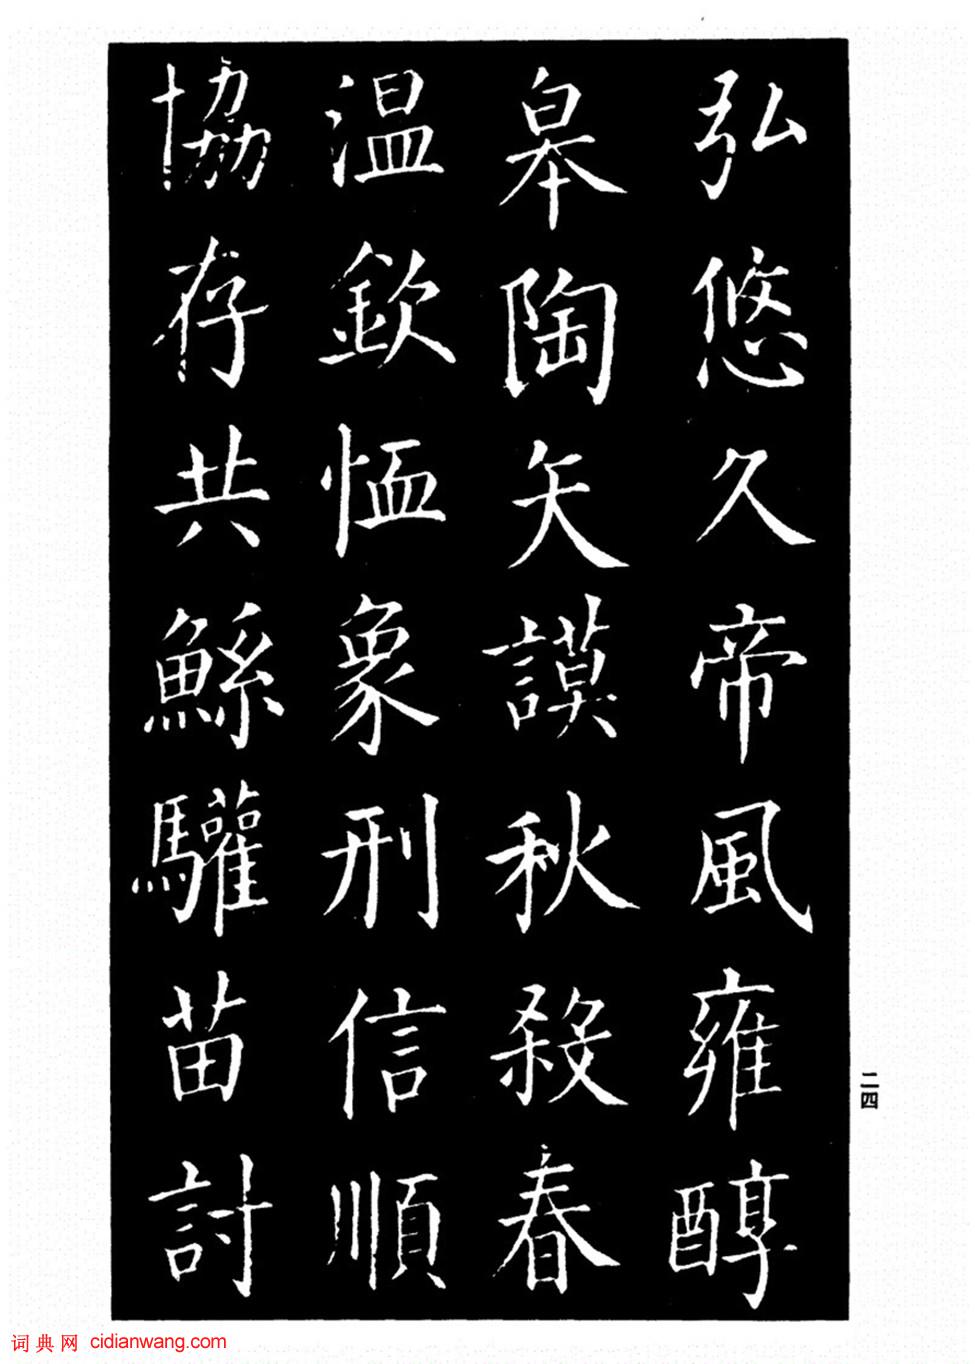 弘悠久帝風雍醇
皋陶矢謨秋殺春
溫欽恤象刑信順
協存共鯀驩苗討
二四
词典网 cidianwang.com